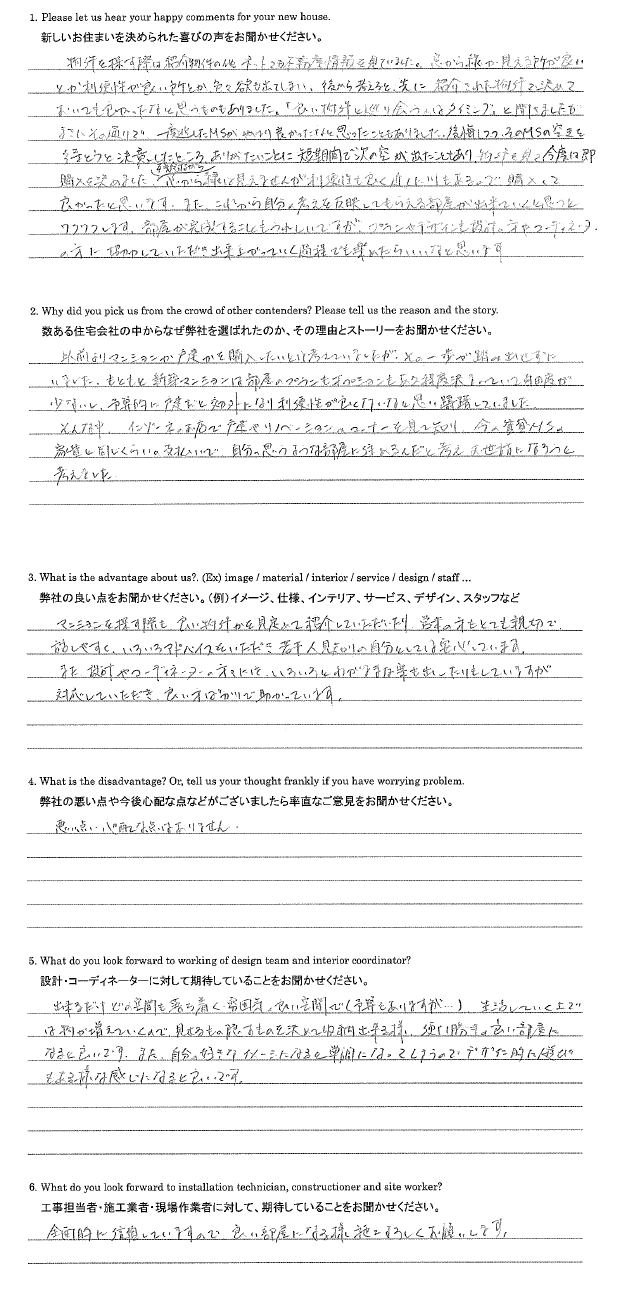 1. Please let us hear your happy comments for your new house.
新しいお住まいを決められた喜びの声をお聞かせください。
物件を探す際は紹介物件の他、ネットでも不動産情報を見ていました。窓から緑が見える所が良い
とか利便性が良い所とか色々欲も出てしまい、後から考えると、先に紹介された物件で決めて
おいても良かったなと思うものもありました。「良い物件と巡り会うのはタイミング」と聞きましたが
まさにその通りで一度逃したMSがやっぱり良かったなんと思ったこともありました。後悔しつつ、そのMSの空きを
待とうと決意したところ、ありがたいことに短期間で次の空が出たこともあり、物件を見て今度は即
購入を決めました。窓から緑は見えませんが利便性も良く近くに川もあるので購入して
良かったと思います。また、これから自分の考えを反映してもらえる部屋が出来ていくと思うと
ワクワクします。部屋が完成することもうれしいですが、プランやデザインも設計の方やコーディネーター
の方に協力していただき出来上がっていく過程でも楽めたらいいなと思います
2. Why did you pick us from the crowd of other contenders? Please tell us the reason and the story.
数ある住宅会社の中からなぜ弊社を選ばれたのか、その理由とストーリーをお聞かせください。
以前よりマンションか戸建かを購入したいとは考えていましたが、その一歩が踏み出せずに
いました。もともと新築マンションは部屋のプランもオプションもある程度決まっていて自由度が
少ないし、予算的に戸建だと郊外になり利便性が良くないなと思い躊躇していました
そんな中、インゾーネのお店で戸建やリノベーションのコーナーを見て知り、今の賃貸MSの
家賃と同じくらいの支払いで、自分の思うような部屋に住めるんだと考えお世話になろうと
考えました。
3. What is the advantage about us?. (Ex) image / material / interior / service / design / staff ...
弊社の良い点をお聞かせください。（例）イメージ、仕様、インテリア、サービス、デザイン、スタッフなど
マンションを探す際も良い物件かを見定めて紹介していただいたり、営業の方もとても親切で
話しやすく、いろいろアドバイスをいただき若干人見知りの自分としても安心しています。
また、設計やコーディネーターの方々には、いろいろとわがままな案も出したりもしていますが
対応していただき、良い方ばかりで助かっています。
4. What is the disadvantage? Or, tell us your thought frankly if you have worrying problem.
弊社の悪い点や今後心配な点などがございましたら率直なご意見をお聞かせください。
悪い点・心配な点はありません。
5. What do you look forward to working of design team and interior coordinator?
設計・コーディネーターに対して期待していることをお聞かせください。
出来るだけどの空間も落ち着く雰囲気の良い空間で（予算もありますが…）生活していく上で
は物が増えていくので、見せるもの隠すものを決めて収納出来る様、使い勝手の良い部屋に
なると良いです。また、自分の好きなイメージになると単調になってしまうのでデザイン的に遊び
もある様な感じになると良いです。
6. What do you look forward to installation technician, constructioner and site worker?
工事担当者・施工業者・現場作業者に対して、期待していることをお聞かせください。
全面的に信頼していますので、良い部屋になる様施工よろしくお願いします。